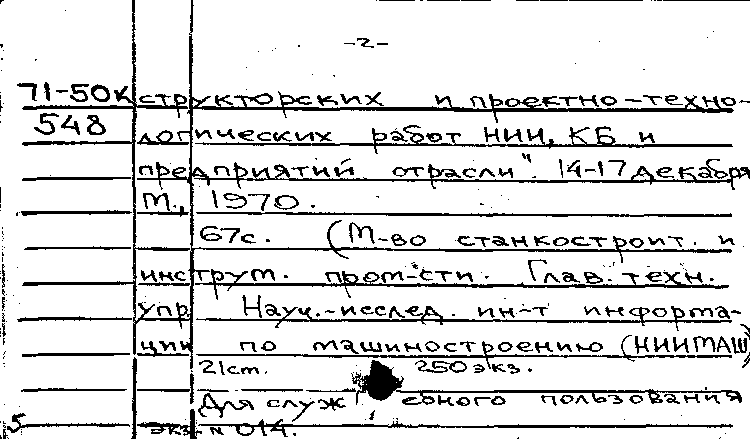 -2-
71-50к структорских и проектно-техно-
548 логических работ НИИ, КБ и
предприятий отрасли". 14-17 декабря
М., 1970.
67с. (М-во станкостроит. и
инструм. пром-сти. Глав. техн.
упр. Науч.-исслед. ин-т информа-
ции по машиностроению (НИИМАШ)
21ст. 250 экз.
Для служебного пользования
экз. N 014.
5